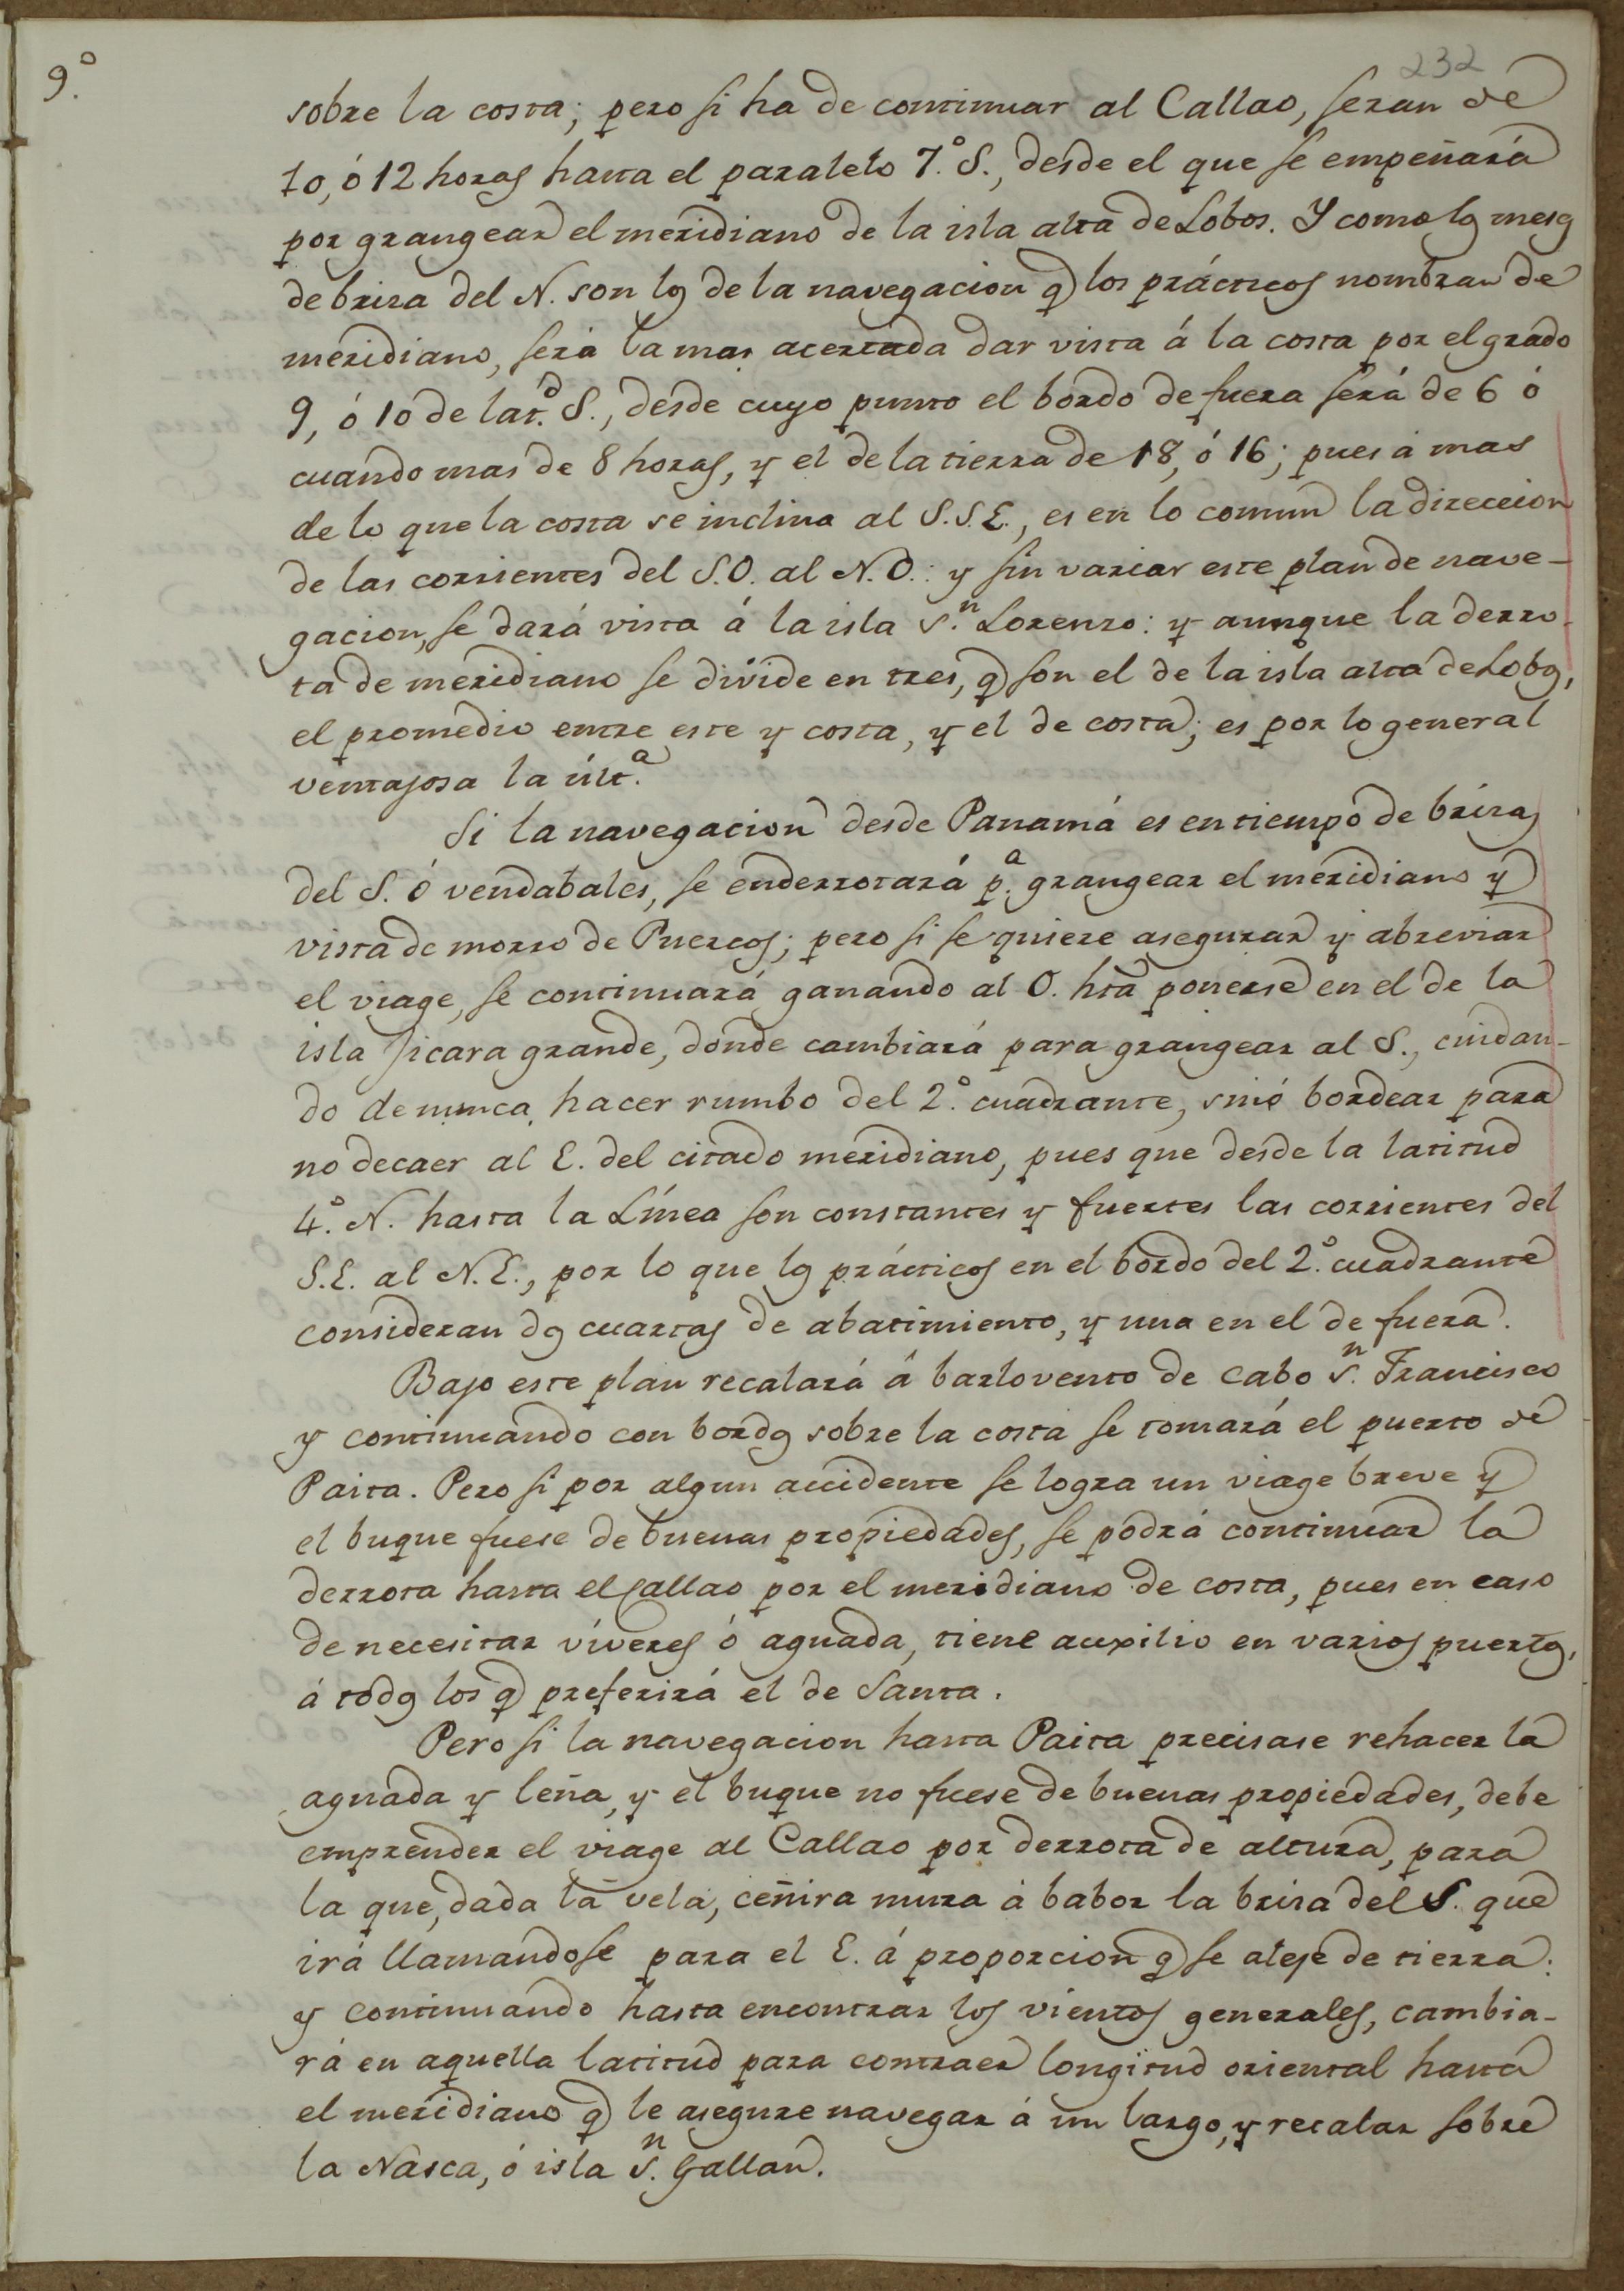 9.º
232
sobre la costa; pero si ha de continuar al Callao, seran de
10, ó 12 horas hasta el paralelo 7.º S., desde el que se empeñará
por grangear el meridiano de la isla alta de Lobos. Y como los meses
de brisa del N. son los de la navegacion q. los prácticos nombran de
meridiano, será la mas acertada dar vista á la costa por el grado
9, ó 10 de lat.d S., desde cuyo punto el bordo de fuera será de 6 ó
cuando mas de 8 horas, y el de la tierra de 18, ó 16; pues á mas
de lo que la costa se inclina al S.S.E., es en lo comun la direccion
de las corrientes del S.O. al N.O.: y sin variar este plan de nave-
gacion, se dará vista á la isla S.n Lorenzo: y aunque la derro-
ta de meridiano se divide en tres, q. son el de la isla alta de Lobos,
el promedio entre este y costa, y el de costa; es por lo general
ventajosa la últ.a
Si la navegacion desde Panamá es en tiempo de brisas
del S. ó vendabales, se enderrotará p.a grangear el meridiano y
vista de morro de Puercos; pero si se quiere asegurar y abreviar
el viage, se continuará ganando al O. hta ponerse en el de la
isla Jicara grande, donde cambiará para grangear al S., cuidan-
do de nunca hacer rumbo del 2.º cuadrante, sinó bordear para
no decaer al E. del citado meridiano, pues que desde la latitud
4.º N. hasta la Línea son constantes y fuertes las corrientes del
S.E. al N.E., por lo que los prácticos en el bordo del 2.º cuadrante
consideran dos cuartas de abatimiento, y una en el de fuera.
Bajo este plan recalará á barlovento de cabo S.n Francisco
y continuando con bordos sobre la costa se tomará el puerto de
Paita. Pero si por algun accidente se logra un viage breve y
el buque fuese de buenas propiedades, se podrá continuar la
derrota hasta el Callao por el meridiano de costa, pues en caso
de necesitar víveres ó aguada, tiene auxilio en varios puertos,
á todos los q. preferirá el de Santa.
Pero si la navegacion hasta Paita precisase rehacer la
aguada y leña, y el buque no fuese de buenas propiedades, debe
emprender el viage al Callao por derrota de altura, para
la que, dada la vela, ceñira mura á babor la brisa del S. que
irá llamandose para el E. á proporcion q. se aleje de tierra:
y continuando hasta encontrar los vientos generales, cambia-
rá en aquella latitud para contraer longitud oriental hasta
el meridiano q. le asegure navegar á un largo, y recalar sobre
la Nasca, ó isla S.n Gallan.